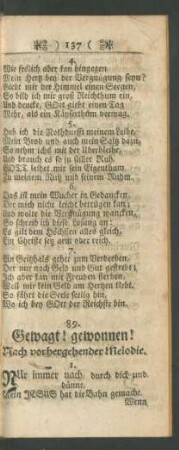 137
4.
Wie frölich aber kan hingegen
Mein Hertz bey der Vergnügung seyn?
Giebt mir der Himmel einen Seegen,
So bild ich mir groß Reichthum ein,
Und dencke, GOtt giebt einen Tag
Mehr, als ein Käyserthum vermag.
5.
Hab ich die Nothdurfft meinem Leibe,
Mein Brod und auch mein Saltz dazu,
So nehm ichs mit der Uberbleibe,
Und brauch es so zu stiller Ruh.
GOTT leihet mir sein Eigenthum
Zu meinem Nutz und seinem Ruhm.
6.
Das ist mein Wucher in Gedancken,
Der mich nicht leicht betrügen kan;
Und wolte die Vergnügung wancken,
So schreib ich diese Losung an:
Es gilt dem Höchsten alles gleich,
Ein Christe sey arm oder reich.
7.
Ein Geitzhals gehet zum Verderben,
Der nur nach Geld und Gut gestrebt,
Ich aber kan mit Freuden sterben,
Weil mir kein Geld am Hertzen klebt.
So fährt die Seele seelig hin,
Wo ich bey GOtt der Reichste bin.
89.
Gewagt! gewonnen!
Nach vorhergehender Melodie.
1.
Nur immer nach, durch dick und
dünne,
Mein JESUS hat die Bahn gemacht.
Wenn